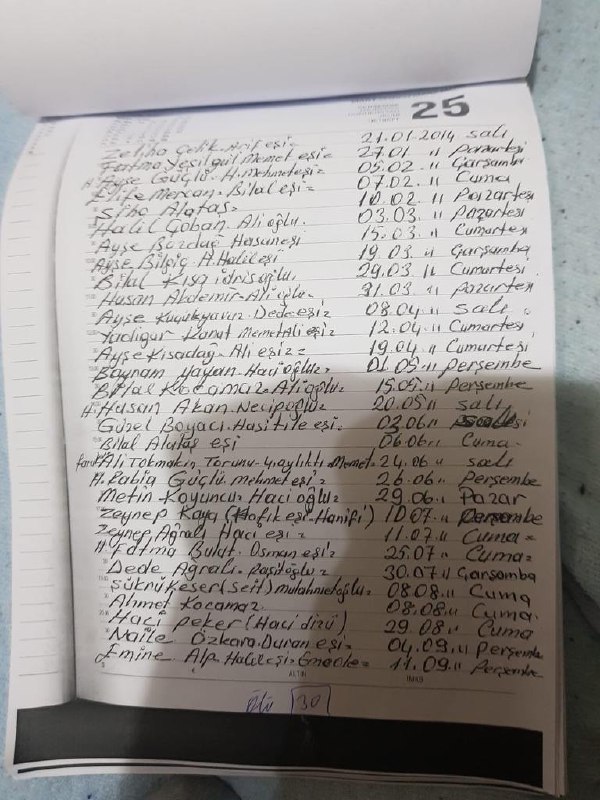 25
Zeliha Çelik Arif eşi = 21.01.2014 salı
Fatma Yeşilgül Memet eşi = 27.01 " Pazartesi
H. Ayşe Güçlü. H. Mehmet eşi = 05.02. " Çarşamba
Elife Mercan. Bilal eşi = 07.02. " Cuma
Alataş = 10.02 " Pazartesi
Halil Çoban Ali oğlu. 03.03. " Pazartesi
Ayşe Bozdağ Hasan eşi 15.03. " Cumartesi
Ayşe Bilgiç H. Halil eşi 19.03. " Çarşamba
Bilal Kısa idris oğlu. 29.03. " Cumartesi
Hasan Akdemir = Ali oğlu. 31.03 " Pazartesi
Ayşe Küçükyavuz. Dede eşi = 08.04. " salı
Yadigur Kanat Memet Ali eşi = 12.04. " Cumartesi
Ayşe Kısadağ. Ali eşi = 19.04. " Cumartesi
Bayram Yayan Haci oğlu = 01.05. " Perşembe
Bilal Kocamaz. Ali oğlu = 15.05. " Perşembe
H. Hasan Akan. Necip oğlu = 20.05 " salı
Günel Boyacı. eşi = 02.06 "
Bilal Alataş eşi 06.06. " Cuma
Ali Tokmakçın Torunu = 4. aylıktı = Memet = 24.06 " salı
H. Rabia Güçlü. Mehmet eşi = 26.06 " Perşembe
Metin Koyuncu = Haci oğlu = 29.06. " Pazar
Zeynep Kaya ( eşi = Hanifi) 10.07 " Perşembe
Zeynep Ağralı Haci eşi = 11.07. " Cuma =
H. Fatma Bulat. Osman eşi = 25.07 " Cuma =
Dede Ağralı. Raşit oğlu = 30.07 " Çarşamba
Şükrü Keser (Seit) oğlu = 08.08. " Cuma
Ahmet Kocamaz 08.08. " Cuma.
Haci Peker (Haci dizü) 29.08. " Cuma
Naile Özkara. Duran eşi = 04.09. " Perşembe
Emine Alp. Halil eşi = 11.09. " Perşembe
ALTIN IMKB
Ölü 30